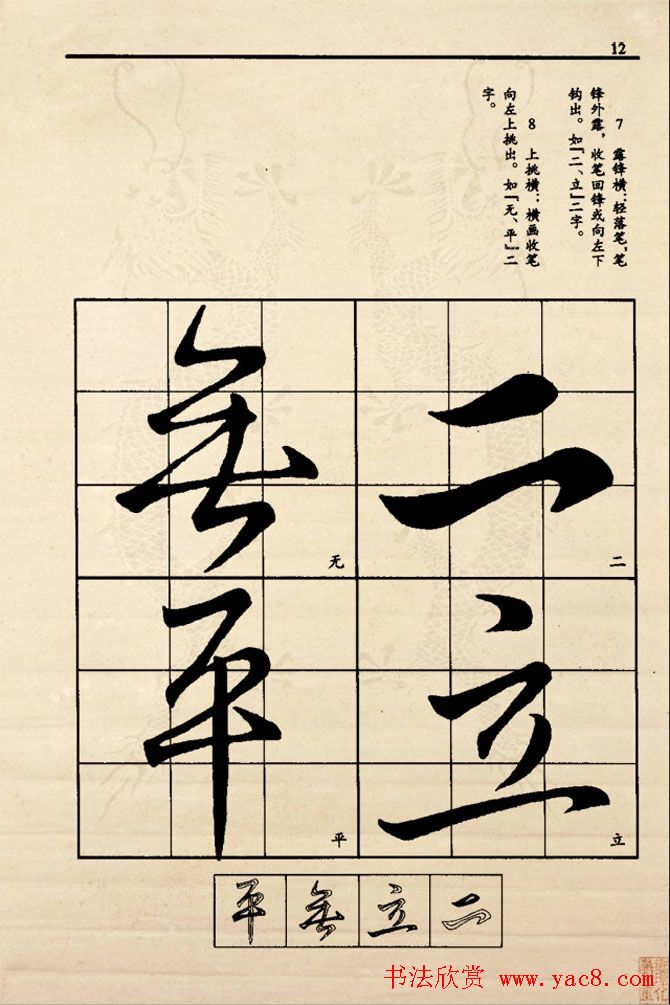 12
7 露锋横：轻落笔，笔
锋外露，收笔回锋或向左下
钩出。如「二、立」二字。
8 上挑横：横画收笔
向左上挑出。如「无、平」二
字。
二
二
立
立
無
无
平
平
二
立
無
平
书法欣赏 www.yac8.com